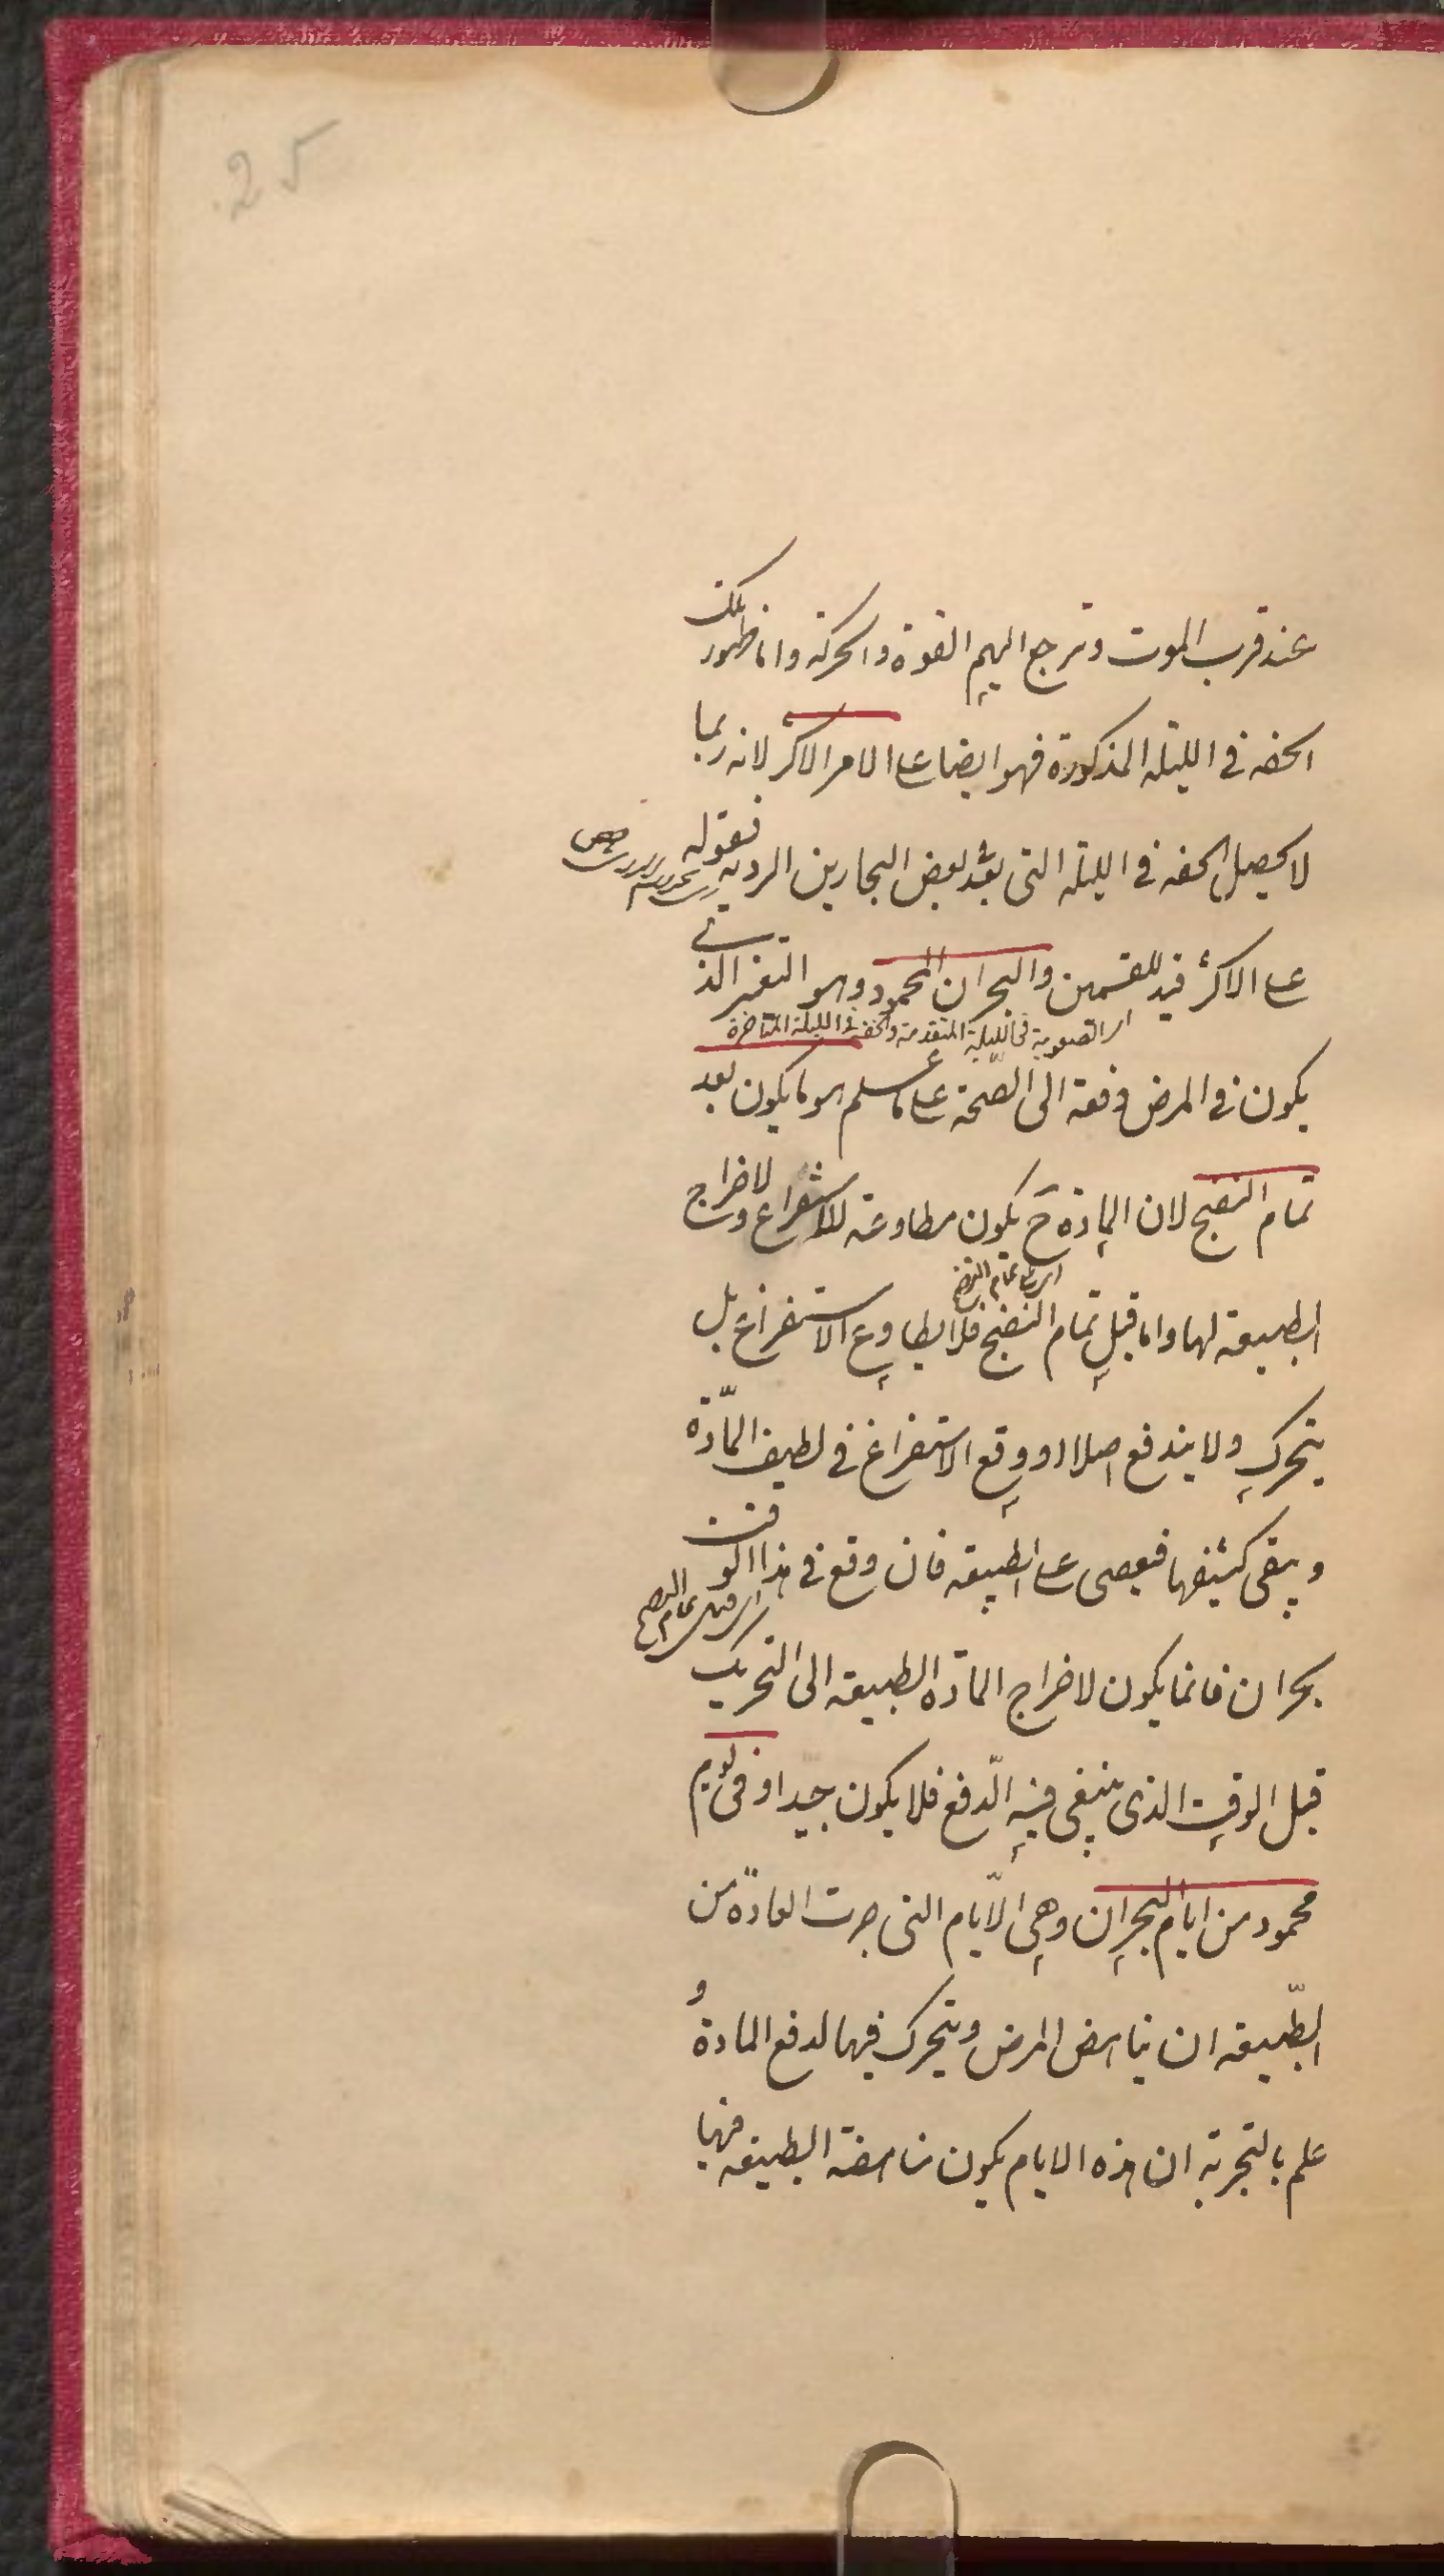 25
عند قرب الموت وترجع اليهم القوة والحركة واما ظهور تلك
الخفه فى الليلة المذكورة فهو ايضا على الامر الاكثر لانه ربما
لا يحصل الخفه فى الليلة التى بعد بعض البحارين الرديه فقوله
على الاكثر قيد للقسمين والبحران المحمود وهو التغير الذى
اى الصعوبة فى الليلة المتقدمة والخفة فى الليلة المتاخرة
يكون فى المرض دفعة الى الصّحة على ما علم هو ما يكون بعد
تمام النضج لان المادة ح يكون مطاوعة للاستفراغ ولاخراج
اى تمام النضج
الطبيعة لها واما قبل تمام النضج فلا يطاوع الاستفراغ بل
يتحرك ولا يندفع اصلا او وقع الاستفراغ فى لطيف المادّة
ويبقى كثيفها فيعصى على الطبيعة فان وقع فى هذا الوقت
اى قبل تمام النضج
بحران فانما يكون لاخراج المادّة الطبيعة الى التحريك
قبل الوقت الذى ينبغى فيه الدّفع فلا يكون جيدا وفى يوم
محمود من ايام البحران وهى الايّام التى جرت العادة من
الطّبيعة ان يناهض المرض ويتحرك فيها لدفع المادة و
علم بالتجربة ان هذه الايام يكون مناهضة الطبيعة فيها